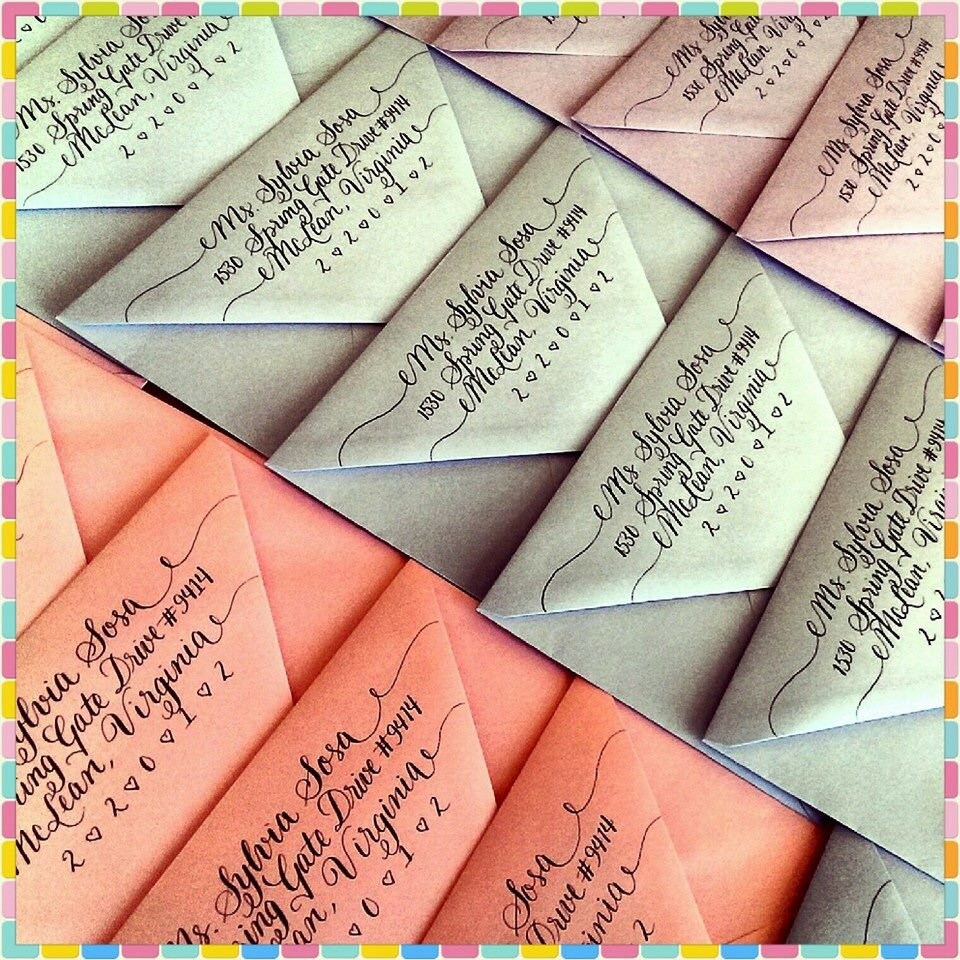 Ms. Sylvia So
1530 Spring Gate D
McLean, Virginia
2 ♡ 2 ♡ 0 ♡ 1 ♡ 2
Ms. Sylvia Sosa
1530 Spring Gate Drive #9414
McLean, Virginia
2 ♡ 2 ♡ 0 ♡ 1 ♡ 2
Ms. Sylvia Sosa
1530 Spring Gate Drive #9414
McLean, Virginia
2 ♡ 2 ♡ 0 ♡ 1 ♡ 2
Ms. Sylvia Sosa
1530 Spring Gate Drive #9414
McLean, Virginia
2 ♡ 2 ♡ 0 ♡ 1 ♡ 2
Ms. Sylvia Sosa
1530 Spring Gate Drive #9414
McLean, Virgin
2 ♡
Ms. Sylvia
1530 Spring Gate
McLean, Virginia
2 ♡ 2 ♡ 0 ♡ 1
Ms. Sylvia Sosa
1530 Spring Gate Drive #9414
McLean, Virginia
2 ♡ 2 ♡ 0 ♡
Sylvia Sosa
ring Gate Drive #9414
McLean, Virginia
2 ♡ 2 ♡ 0 ♡ 1 ♡ 2
Ms. Sylvia Sosa
ing Gate Drive #9414
an, Virginia
♡ 0 ♡ 1 ♡ 2
Sosa
Drive #9414
rginia
2